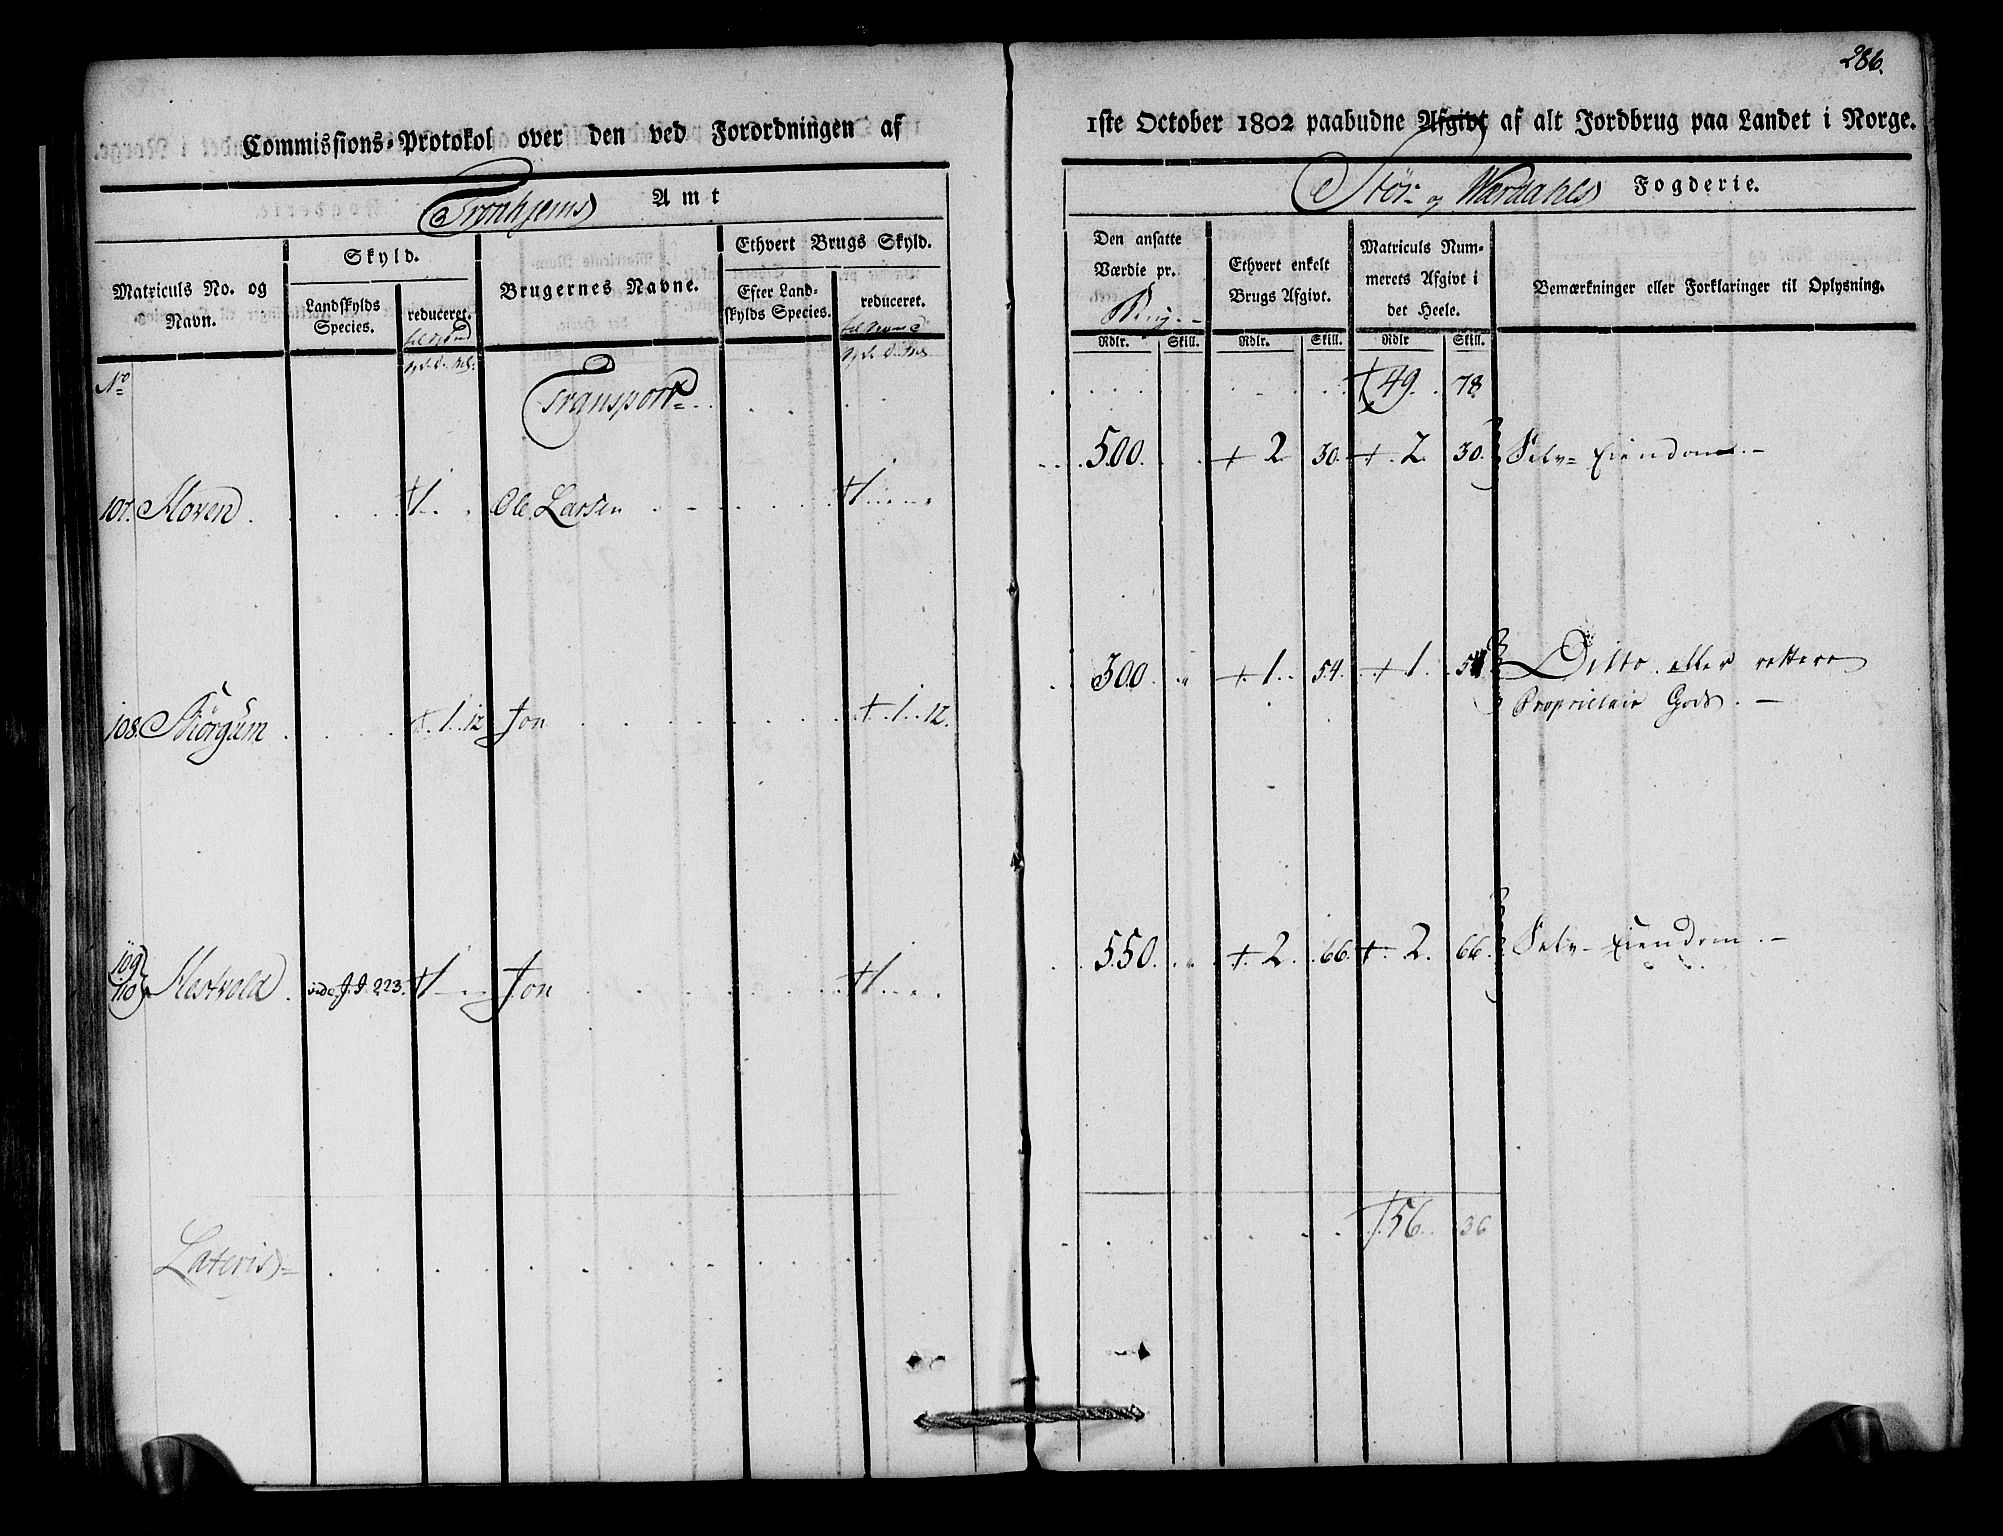 286.
Commissions-Protokol over den ved Forordningen af
1ste October 1802 paabudne Afgivt af alt Jordbrug paa Landet i Norge.
Tronhjems Amt
Stør- og Værdahls Fogderie.
Matriculs No. og Navn.
Skyld.
Landskylds Species.
reduceret.
Brugernes Navne.
Ethvert Brugs Skyld.
Efter Landskylds Species.
reduceret.
Den ansatte Værdie pr.
Ethvert enkelt Brugs Afgivt.
Matriculs Nummerets Afgivt i det Heele.
Bemærkninger eller Forklaringer til Oplysning.
Rdlr. Skill. Rdlr. Skill. Rdlr Skill.
No
Transport 49. 78
107. Hoven 1 Ole Larsen 1 500 2 30. 2 30. Selv-Eiendom.
108. Skiørgum 1. 12 Jon 1. 12. 300 1 54. 1 54 Ditto eller rettere
Proprietair Gods.
109
110 Hestvold vide J. J. 223. 1 Jon 1 550 2 66 2 66 Selv-Eiendom.
Lateris 56 36